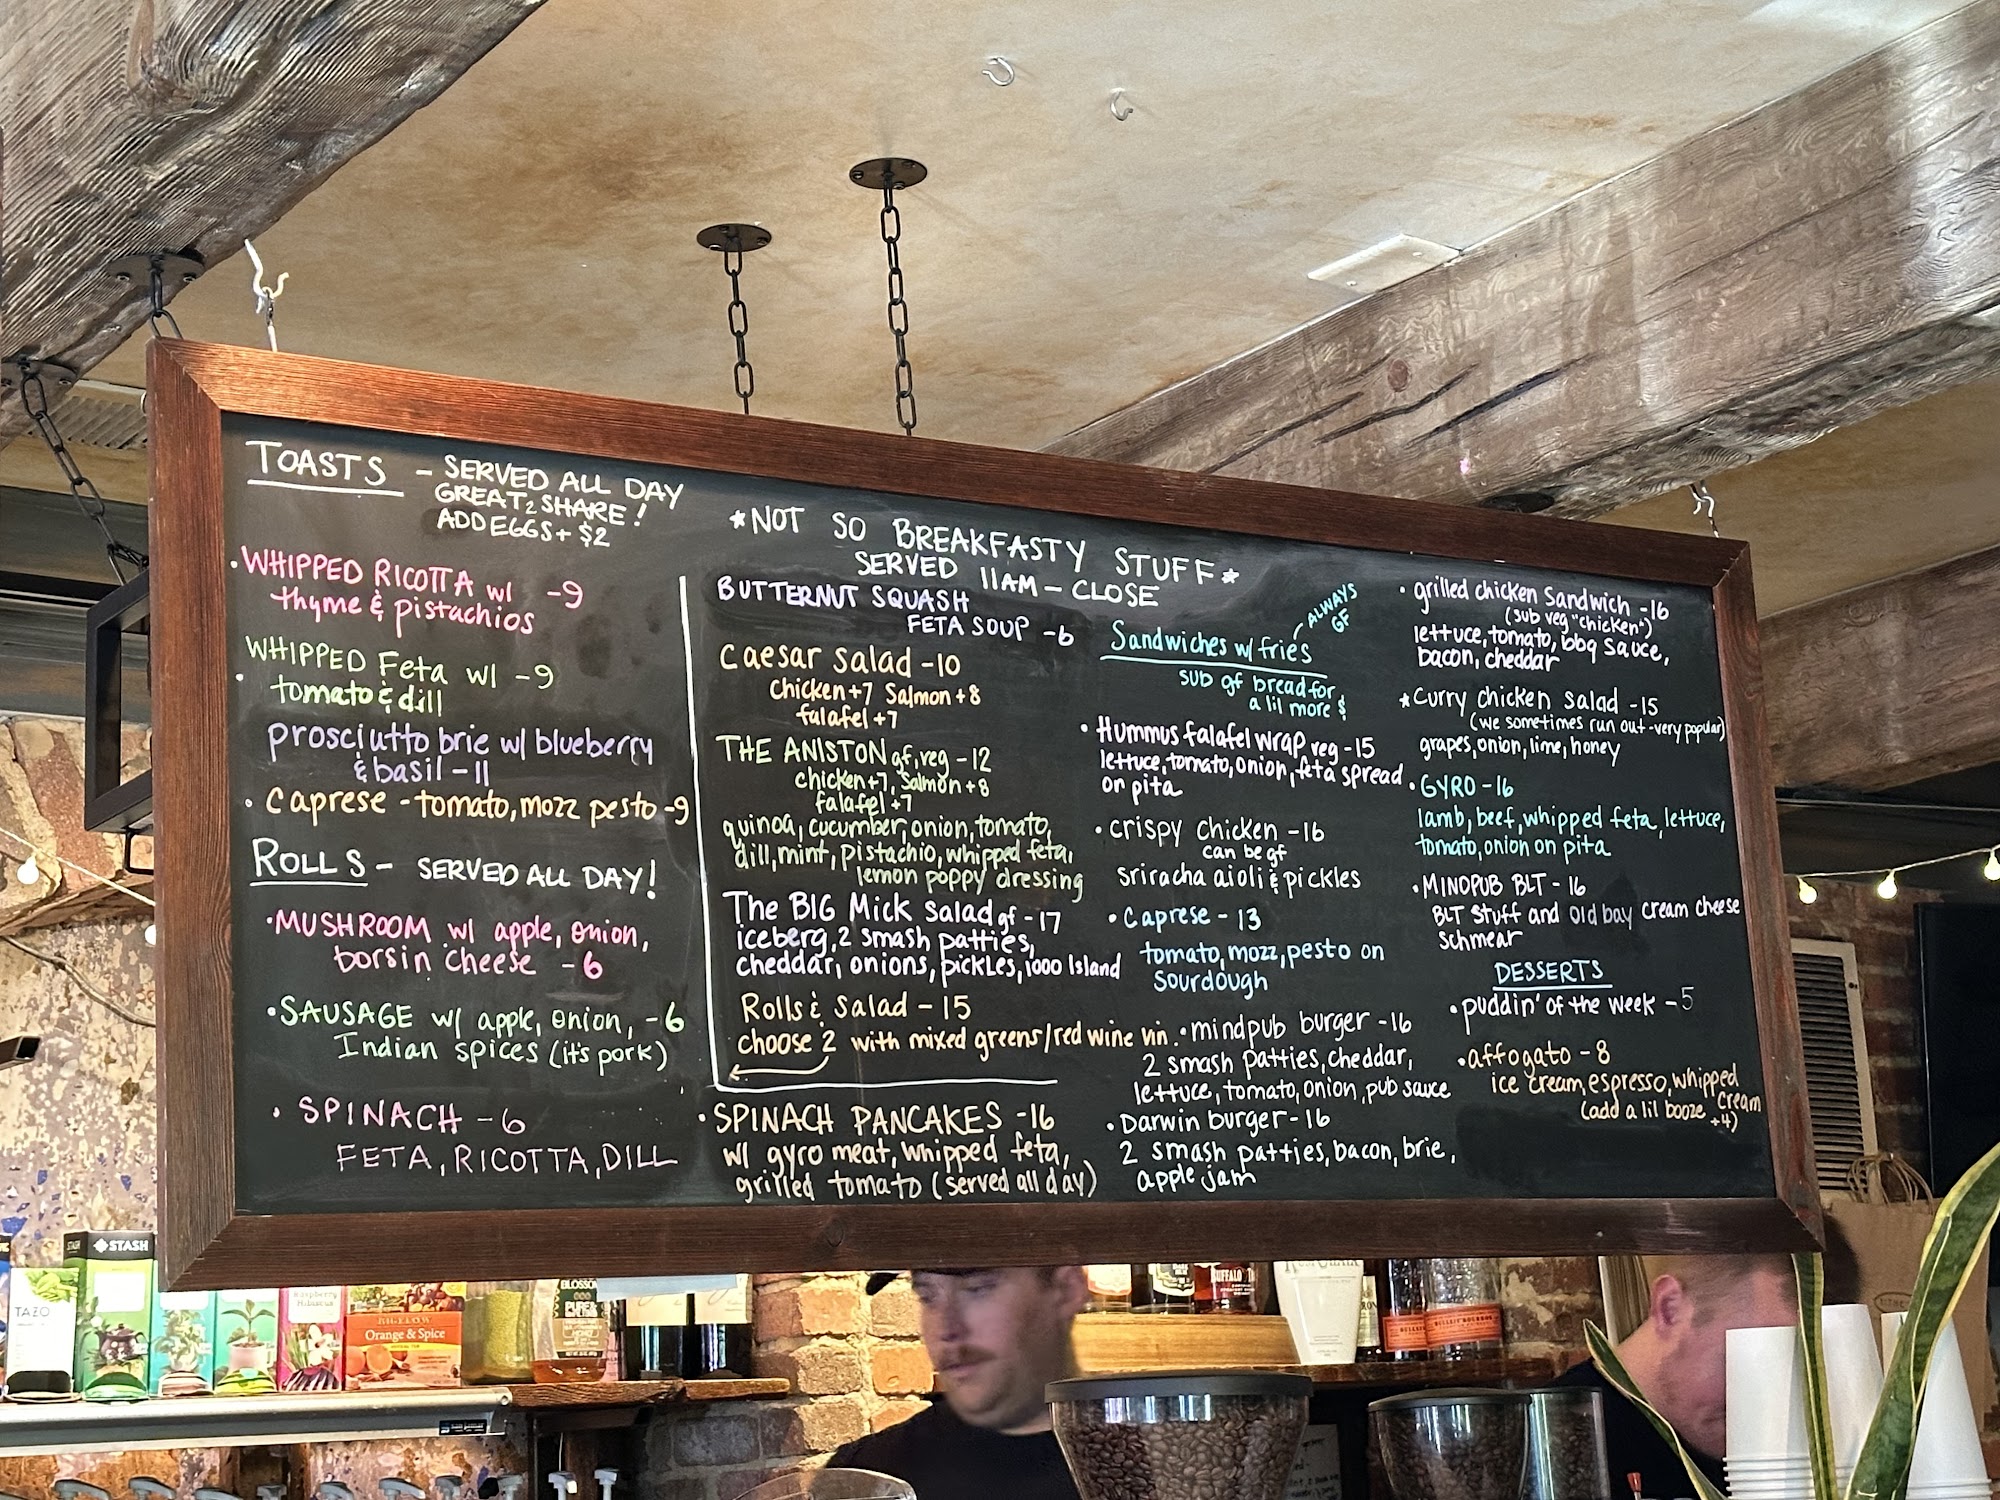 TOASTS - SERVED ALL DAY
GREAT 2 SHARE!
ADD EGGS + $2
• WHIPPED RICOTTA w/ -9
thyme & pistachios
WHIPPED Feta w/ -9
• tomato & dill
prosciutto brie w/ blueberry
& basil - 11
• caprese - tomato, mozz pesto -9
ROLLS - SERVED ALL DAY!
• MUSHROOM w/ apple, onion,
borsin cheese - 6
• SAUSAGE w/ apple, onion, -6
Indian spices (it's pork)
• SPINACH - 6
FETA, RICOTTA, DILL
*NOT SO BREAKFASTY STUFF*
SERVED 11AM - CLOSE
BUTTERNUT SQUASH
FETA SOUP -6
caesar salad -10
chicken +7 Salmon +8
falafel +7
THE ANISTON gf, veg - 12
chicken +7, Salmon +8
falafel +7
quinoa, cucumber, onion, tomato,
dill, mint, pistachio, whipped feta,
lemon poppy dressing
The BIG Mick Salad gf - 17
iceberg, 2 smash patties,
cheddar, onions, pickles, 1000 Island
Rolls & Salad - 15
choose 2 with mixed greens/red wine vin.
• SPINACH PANCAKES -16
w/ gyro meat, whipped feta,
grilled tomato (served all day)
ALWAYS
GF
Sandwiches w/ fries
sub gf bread for
a lil more $
• Hummus falafel wrap veg -15
lettuce, tomato, onion, feta spread
on pita
• crispy chicken -16
can be gf
sriracha aioli & pickles
• Caprese - 13
tomato, mozz, pesto on
sourdough
• mindpub burger -16
2 smash patties, cheddar,
lettuce, tomato, onion, pub sauce
• Darwin burger - 16
2 smash patties, bacon, brie,
apple jam
• grilled chicken Sandwich -16
(sub veg "chicken")
lettuce, tomato, bbq sauce,
bacon, cheddar
*Curry chicken salad -15
(we sometimes run out - very popular)
grapes, onion, lime, honey
• GYRO - 16
lamb, beef, whipped feta, lettuce,
tomato, onion on pita
• MINDPUB BLT - 16
BLT Stuff and old bay cream cheese
schmear
DESSERTS
• puddin' of the week - 5
• affogato - 8
ice cream, espresso, whipped
cream
(add a lil booze +4)
STASH
TAZO
Raspberry
Hibiscus
BIGELOW
Orange & Spice
BLOSSOM
PURE
BUFFALO
BULLEIT
BULLEIT BOURBON